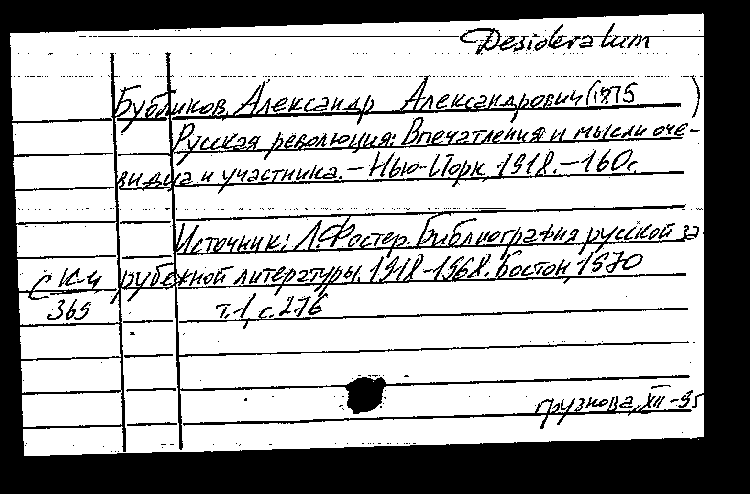 Desideratum
Бубликов, Александр Александрович (1875 )
Русская революция: Впечатления и мысли оче-
видца и участника. – Нью-Йорк, 1918. – 160 с.
Источник: Л. Фостер. Библиография русской за-
рубежной литературы. 1918-1968. Бостон, 1970
т. 1, с. 276
С К-4
365
Грузнова, XII-95